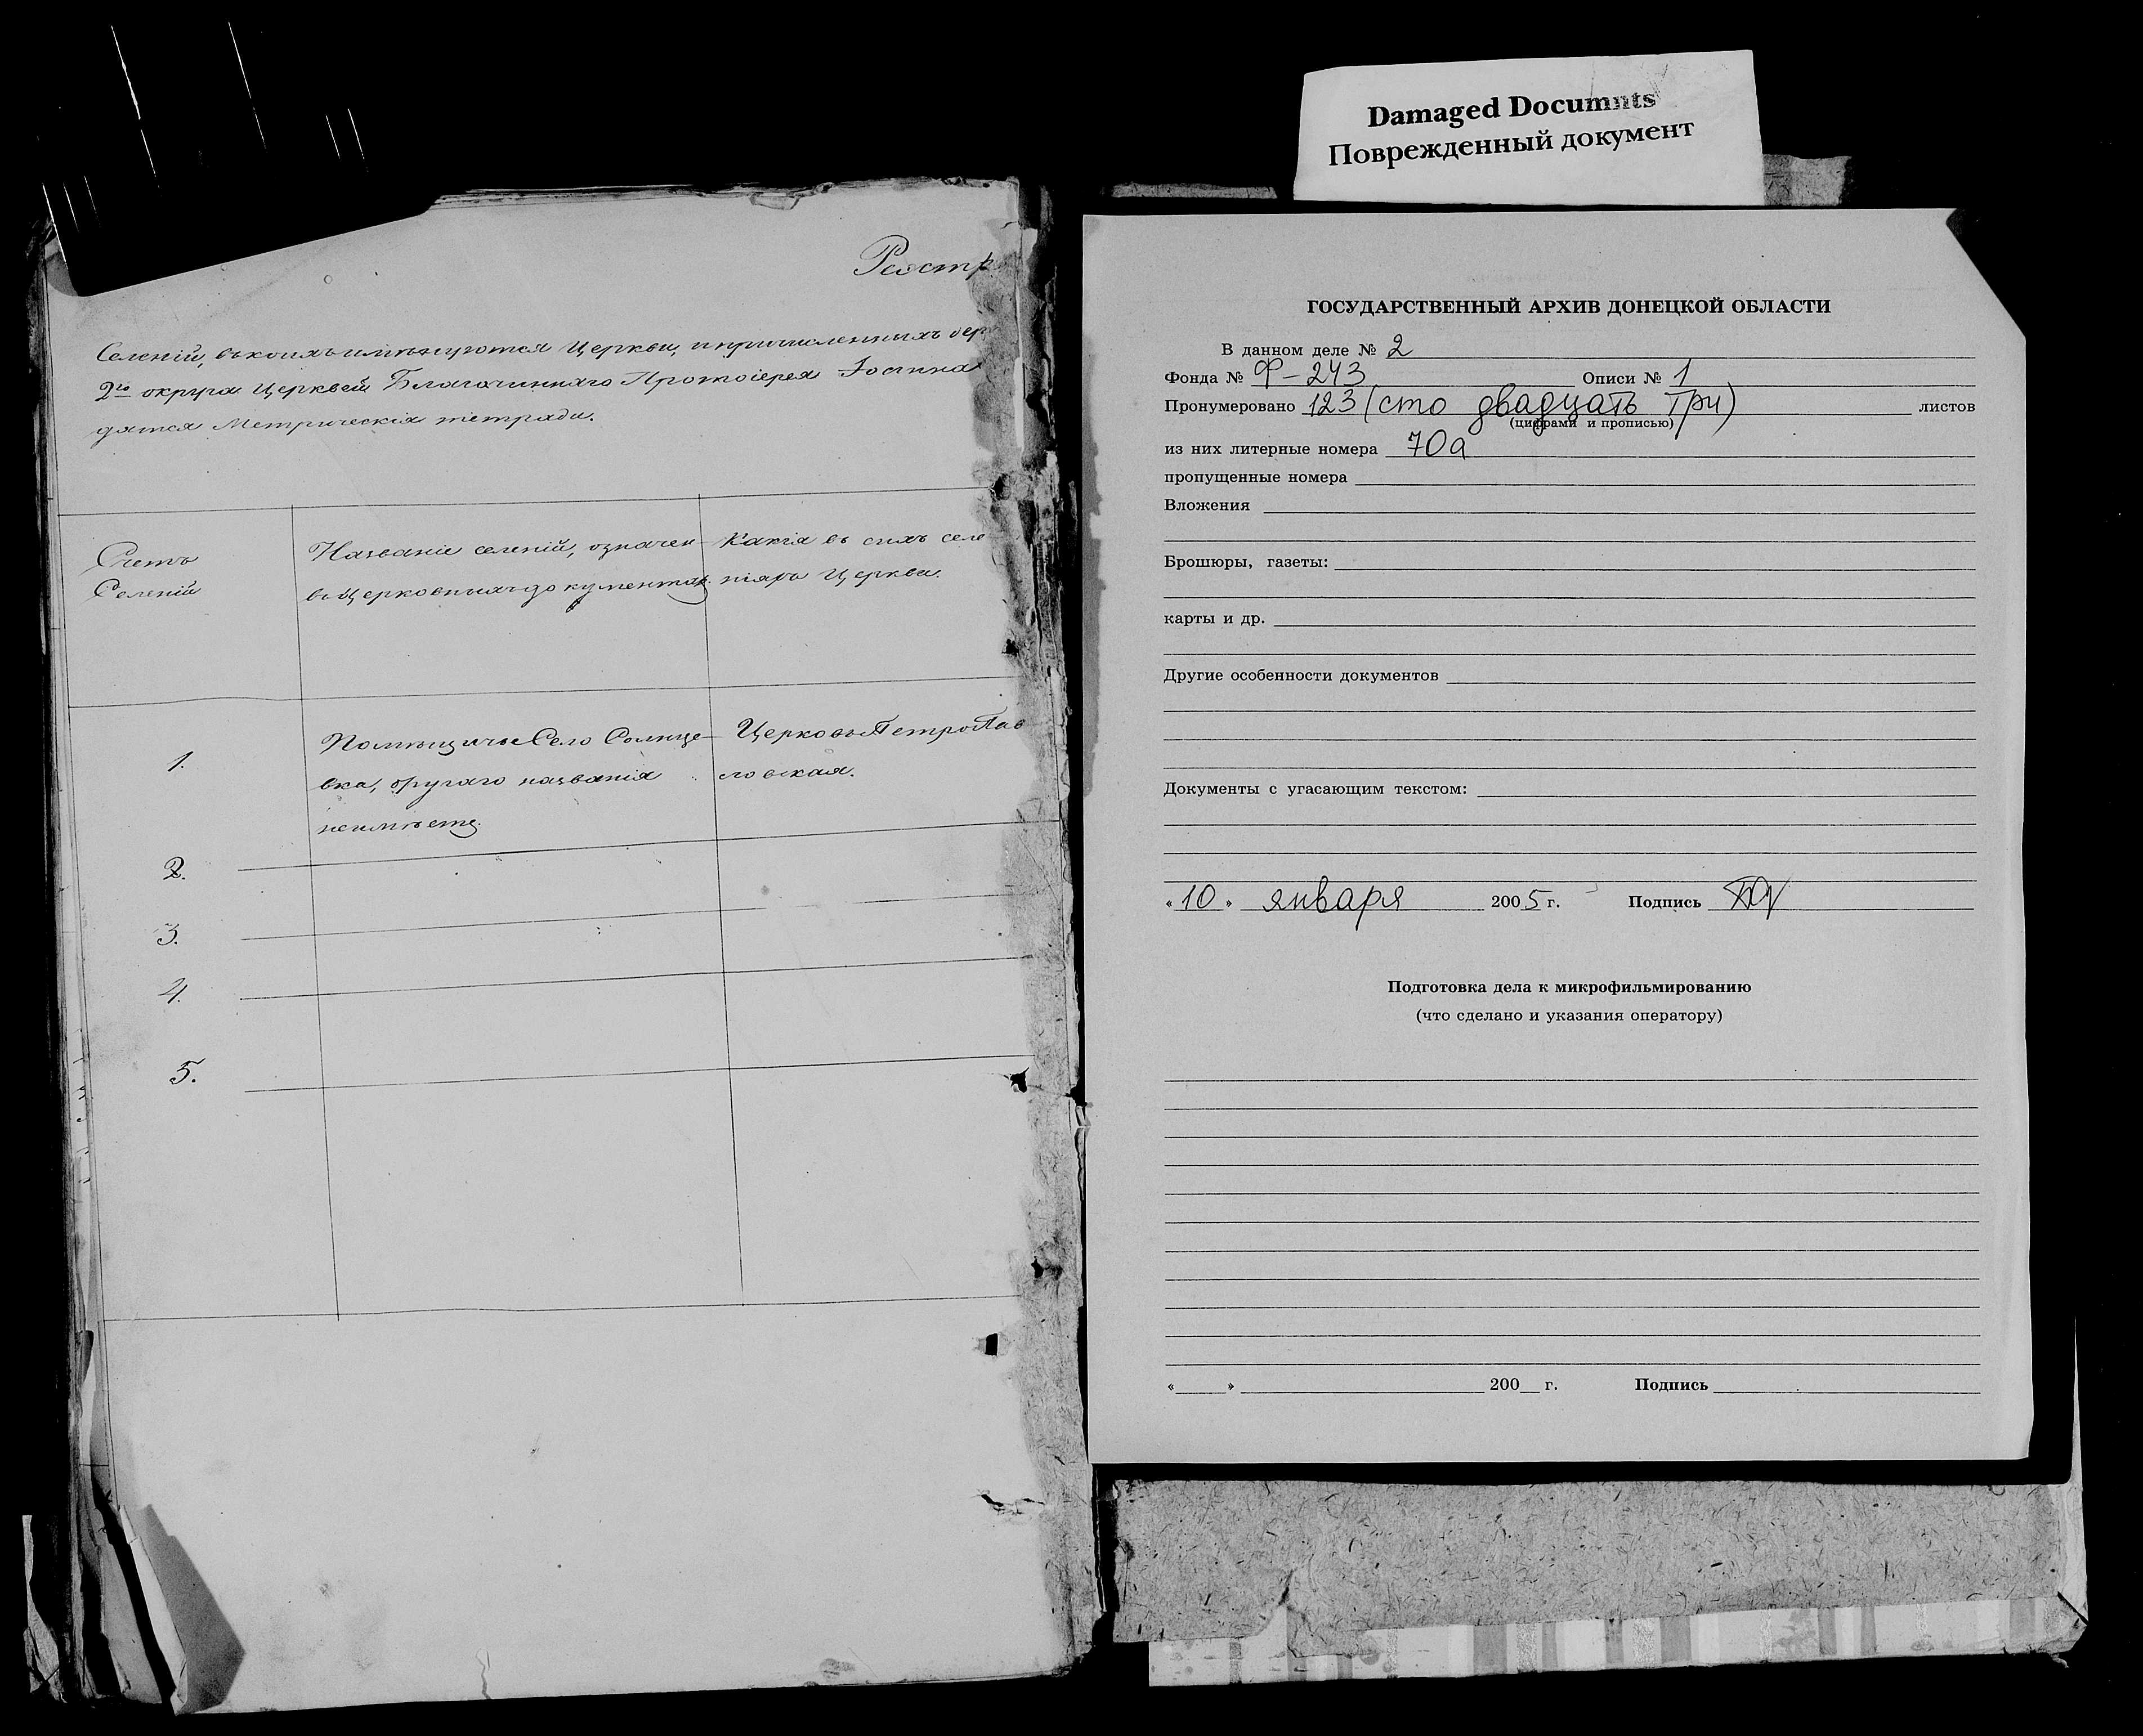 Реэстр
Селеній, въ коихъ имѣются Церкви, и причисленныхъ
2го округа Церквей Благочиннаго Протоіерея Іоанна
дятся Метрическія тетради.
Счетъ
Селеній
Названіе селеній, означен
въ Церковныхъ документах.
Какія въ сихъ селе
ніяхъ Церкви.
1.
Помѣщичье Село Солнце-
вка, другаго названія
неимѣетъ.
Церковь Петро Пав
ловская.
2.
3.
4.
5.
Damaged Documnts
Поврежденный документ
ГОСУДАРСТВЕННЫЙ АРХИВ ДОНЕЦКОЙ ОБЛАСТИ
В данном деле № 2
Фонда № Ф-243 Описи № 1
Пронумеровано 123 (сто двадцать три) листов
(цифрами и прописью)
из них литерные номера 70а
пропущенные номера
Вложения
Брошюры, газеты:
карты и др.
Другие особенности документов
Документы с угасающим текстом:
« 10 » января 2005 г. Подпись
Подготовка дела к микрофильмированию
(что сделано и указания оператору)
« » 200 г. Подпись